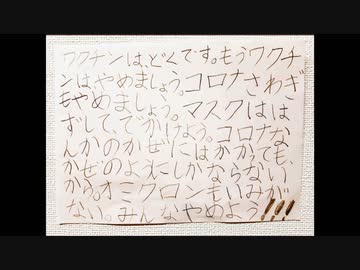 ワクチンは、どくです。もうワクチ
ンは、やめましょう。コロナさわぎ
もやめましょう。マスクはは
ずして、でかけよう。コロナな
んかのかぜにはかかっても、
かぜのようにしかならない
から。オミクロンもいみが
ない。みんなやめよう!!!